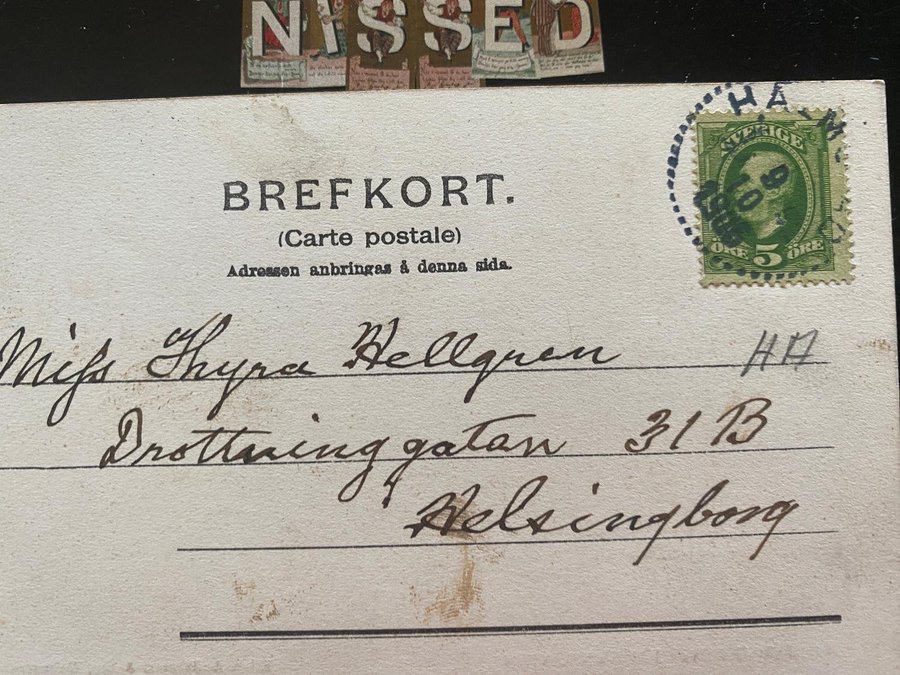 NISSED
BREFKORT.
(Carte postale)
Adressen anbringas å denna sida.
SVERIGE
5
ÖRE ÖRE
Miss Thyra Hellgren
Drottninggatan 31 B
Helsingborg